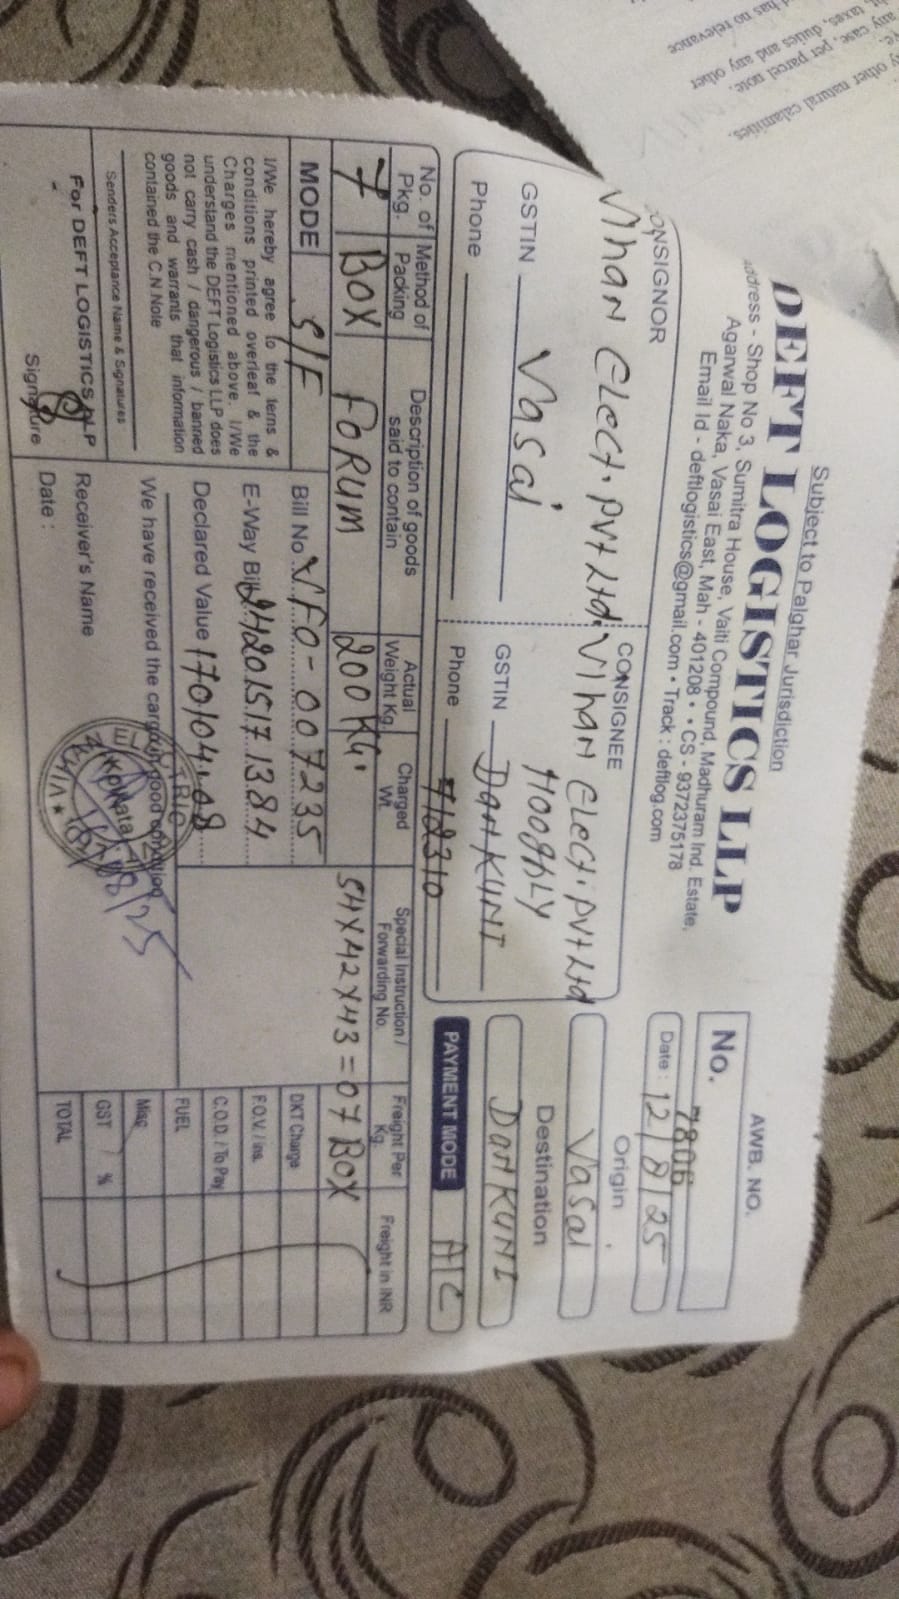 Subject to Palghar Jurisdiction
DEFT LOGISTICS LLP
Address - Shop No 3, Sumitra House, Vaiti Compound, Madhuram Ind. Estate,
Agarwal Naka, Vasai East, Mah - 401208 • • CS - 9372375178
Email Id - deftlogistics@gmail.com • Track : deftlog.com
AWB. NO.
No. 7806
Date : 12/8/25
CONSIGNOR
Vihan Elect. Pvt Ltd.
Vasai
GSTIN
Phone
CONSIGNEE
Vihan Elect. Pvt Ltd
HooghLY
GSTIN DanKUNI
Phone 712310
Origin
Vasai
Destination
DanKUNI
PAYMENT MODE A/C
No. of Pkg.
Method of Packing
Description of goods said to contain
Actual Weight Kg.
Charged Wt.
Special Instruction / Forwarding No.
Freight Per Kg.
Freight in INR
7 BOX FORUM 200 KG. 54X42X43 = 07 BOX
MODE S/F
Bill No. VFO-007235
E-Way Bill
Declared Value 170104.08
I/We hereby agree to the terns &
conditions printed overleaf & the
Charges mentioned above. I/We
understand the DEFT Logistics LLP does
not carry cash / dangerous / banned
goods and warrants that information
contained the C.N Note
Senders Acceptance Name & Signatures
For DEFT LOGISTICS LLP
Signature
We have received the cargo in good condition
Kolkata
Receiver's Name
Date :
DKT Charge
F.O.V. / ins.
C.O.D. / To Pay
FUEL
Misc
GST / %
TOTAL
any other natural calamities.
per parcel note.
any case,
taxes, duties and any other
has no relevance